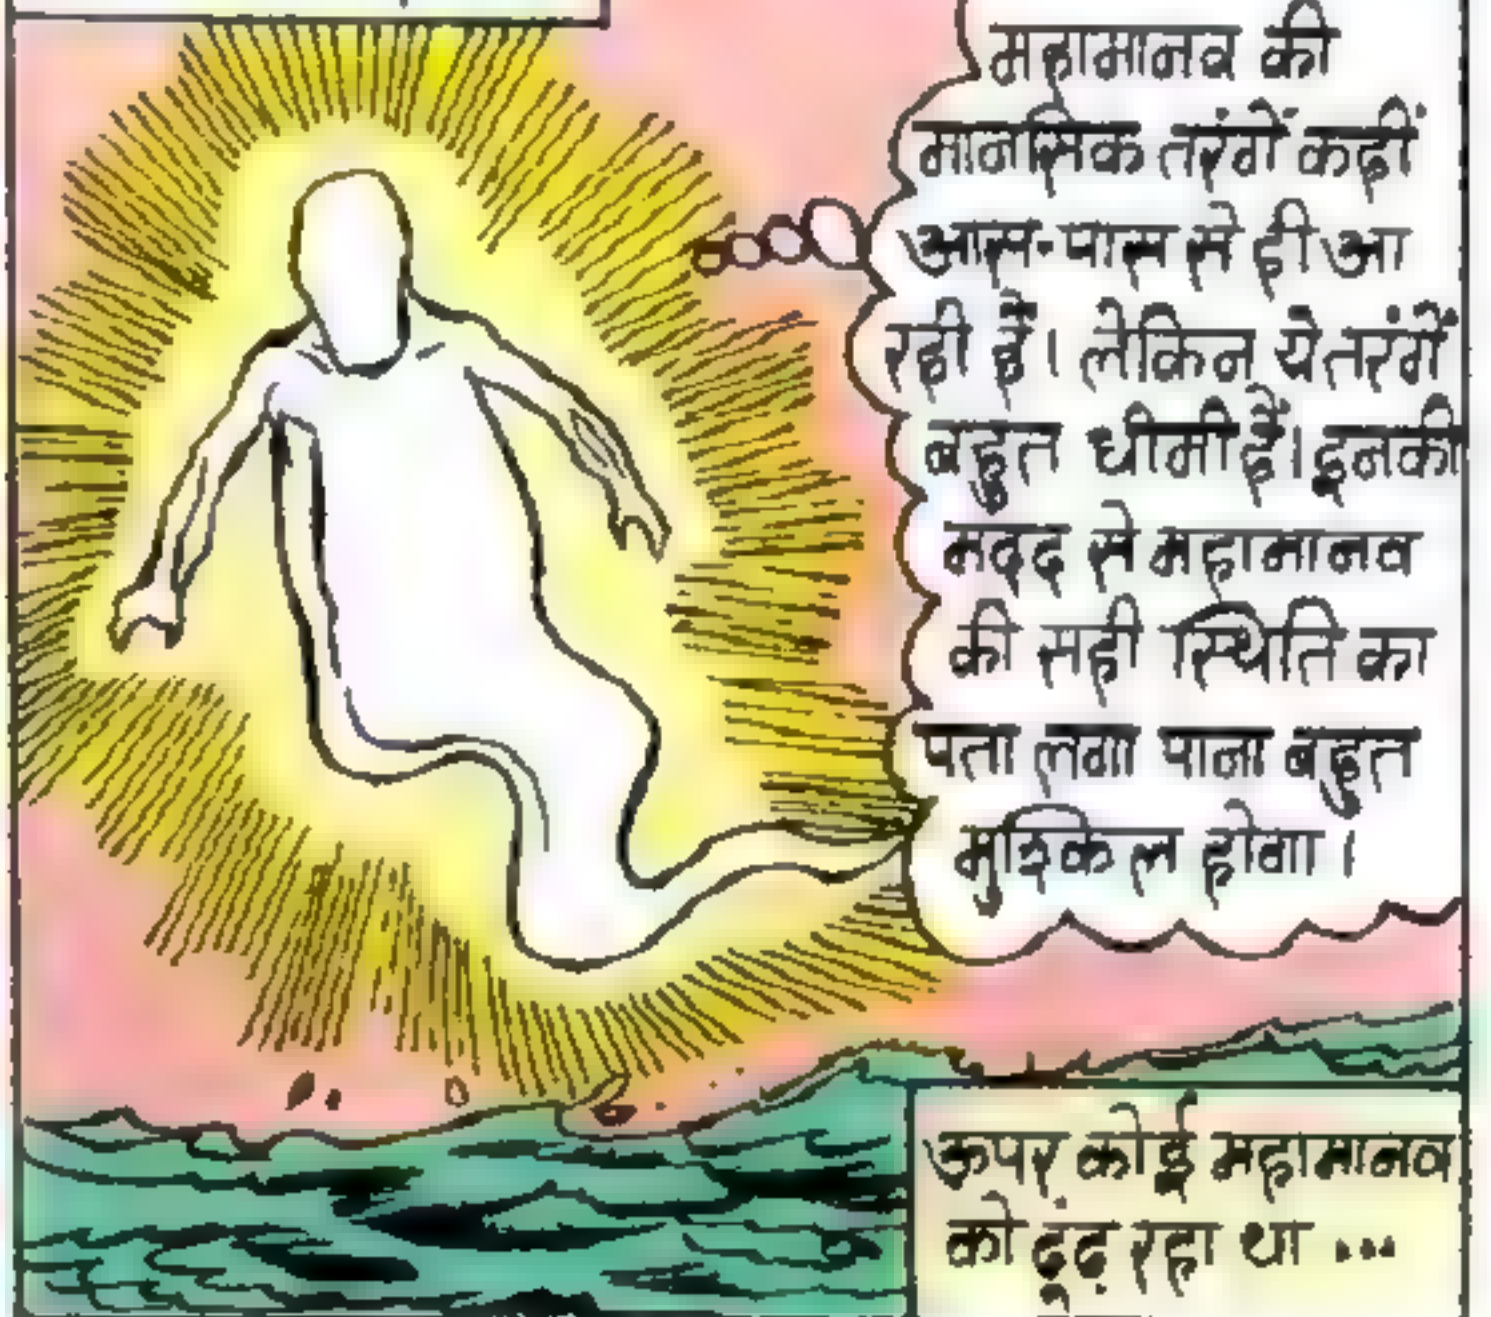 महामानव की
मानसिक तरंगें कहीं
आस-पास से ही आ
रही हैं। लेकिन ये तरंगें
बहुत धीमी हैं। इनकी
मदद से महामानव
की सही स्थिति का
पता लगा पाना बहुत
मुश्किल होगा।
ऊपर कोई महामानव
को ढूंढ़ रहा था...